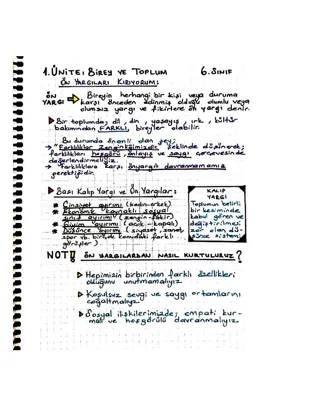 1. ÜNİTE: BİREY VE TOPLUM 6. SINIF
ÖN YARGILARI KIRIYORUM:
ÖN YARGI
Bireyin herhangi bir kişi veya duruma
karşı önceden edinmiş olduğu olumlu veya
olumsuz yargı ve fikirlere ön yargı denir.
Bir toplumda; dil, din, yaşayış, ırk, kültür
bakımından FARKLI bireyler olabilir.
Bu durumda önemli olan şey;
Farklılıklar zenginliğimizdir şeklinde düşünerek;
farklılıkları hoşgörü, anlayış ve saygı çerçevesinde
değerlendirmeliyiz.
Farklılıklara karşı önyargılı davranmamamız
gerektiğidir.
Bazı Kalıp Yargı ve Ön Yargılar:
* Cinsiyet ayrımı (kadın-erkek)
* Ekonomik kaynaklı sosyal
sınıf ayrımı (zengin-fakir)
* ayrımı (açık-kapalı)
* Düşünce ayrımı (siyaset, sanat,
spor vb. birçok konudaki farklı
görüşler)
KALIP
YARGI
Toplumun belirli
bir kesiminde,
kabul gören ve
değiştirilmesi
zor olan dü-
şünce sistemi
NOT!! ÖN YARGILARDAN NASIL KURTULURUZ?
Hepimizin birbirinden farklı özellikleri
olduğunu unutmamalıyız
Koşulsuz sevgi ve saygı ortamlarını
çoğaltmalıyız
Sosyal ilişkilerimizde; empati kur-
malı ve hoşgörülü davranmalıyız.